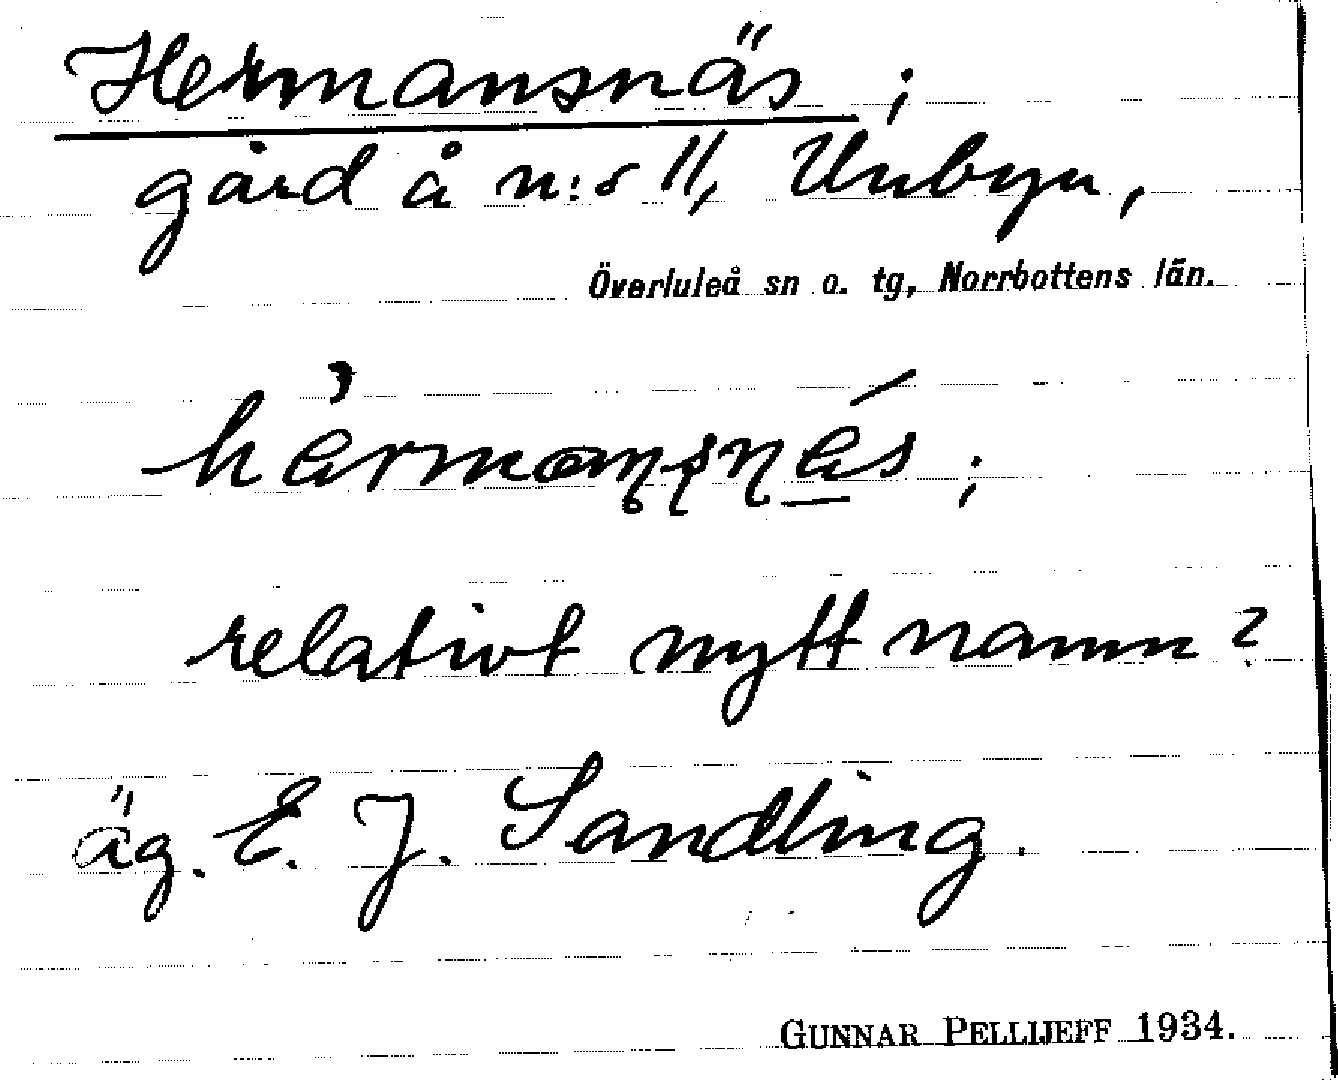 Hermansnäs ;
gård å n:r 11, Unbyn,
Överluleå sn o. tg, Norrbottens län.
relativt nytt namn?
äg. E. J. Sandling.
GUNNAR PELLIJEFF 1934.